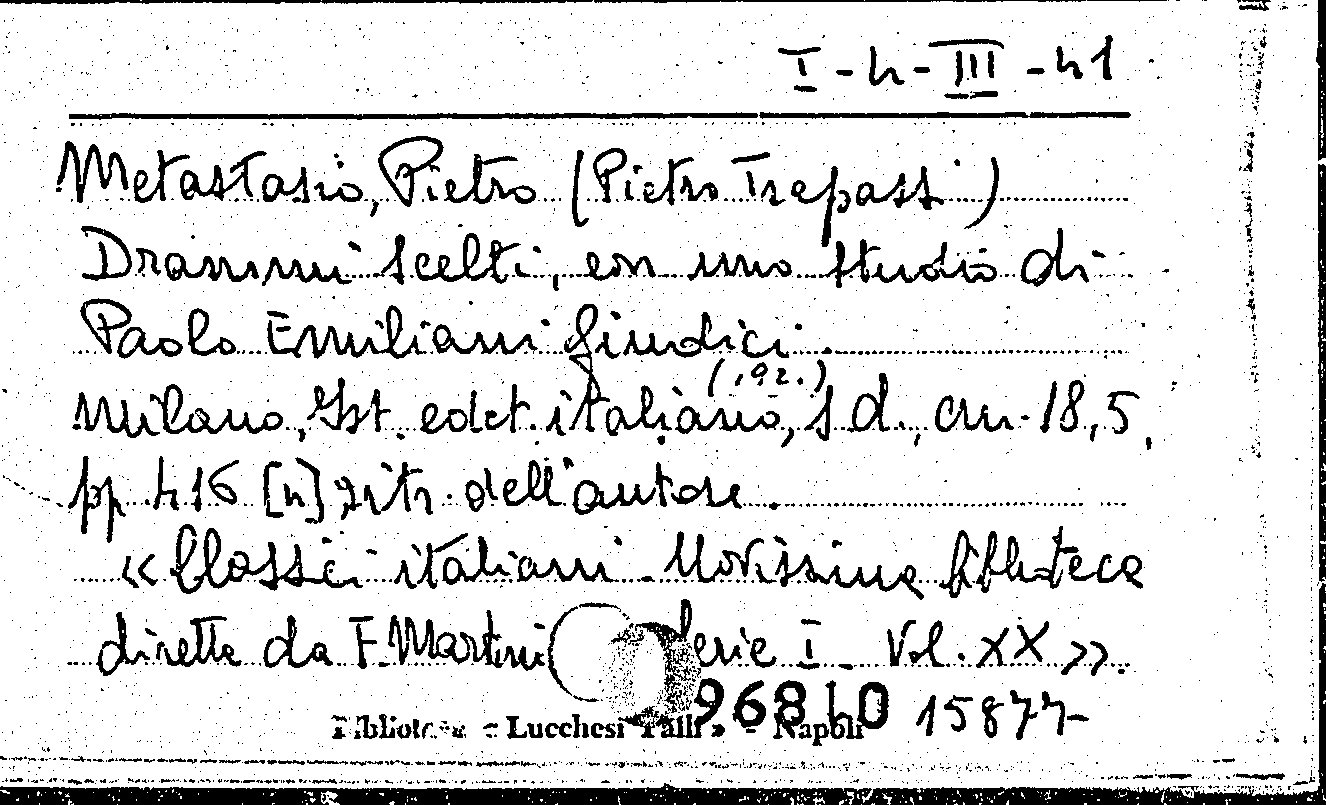 I-4-III-41
Metastasio, Pietro (Pietro Trepassi)
Drammi scelti, con uno studio di
Paolo Emiliani Giudici.
(192.)
Milano, Ist. edit. italiano, s d., cm. 18,5,
pp 416 [4], ritr. dell'autore.
«Classici italiani. Novissima biblioteca
diretta da F. Martini Serie I - Vol. XX».
96810 15877
Biblioteca « Lucchesi Palli » - Napoli